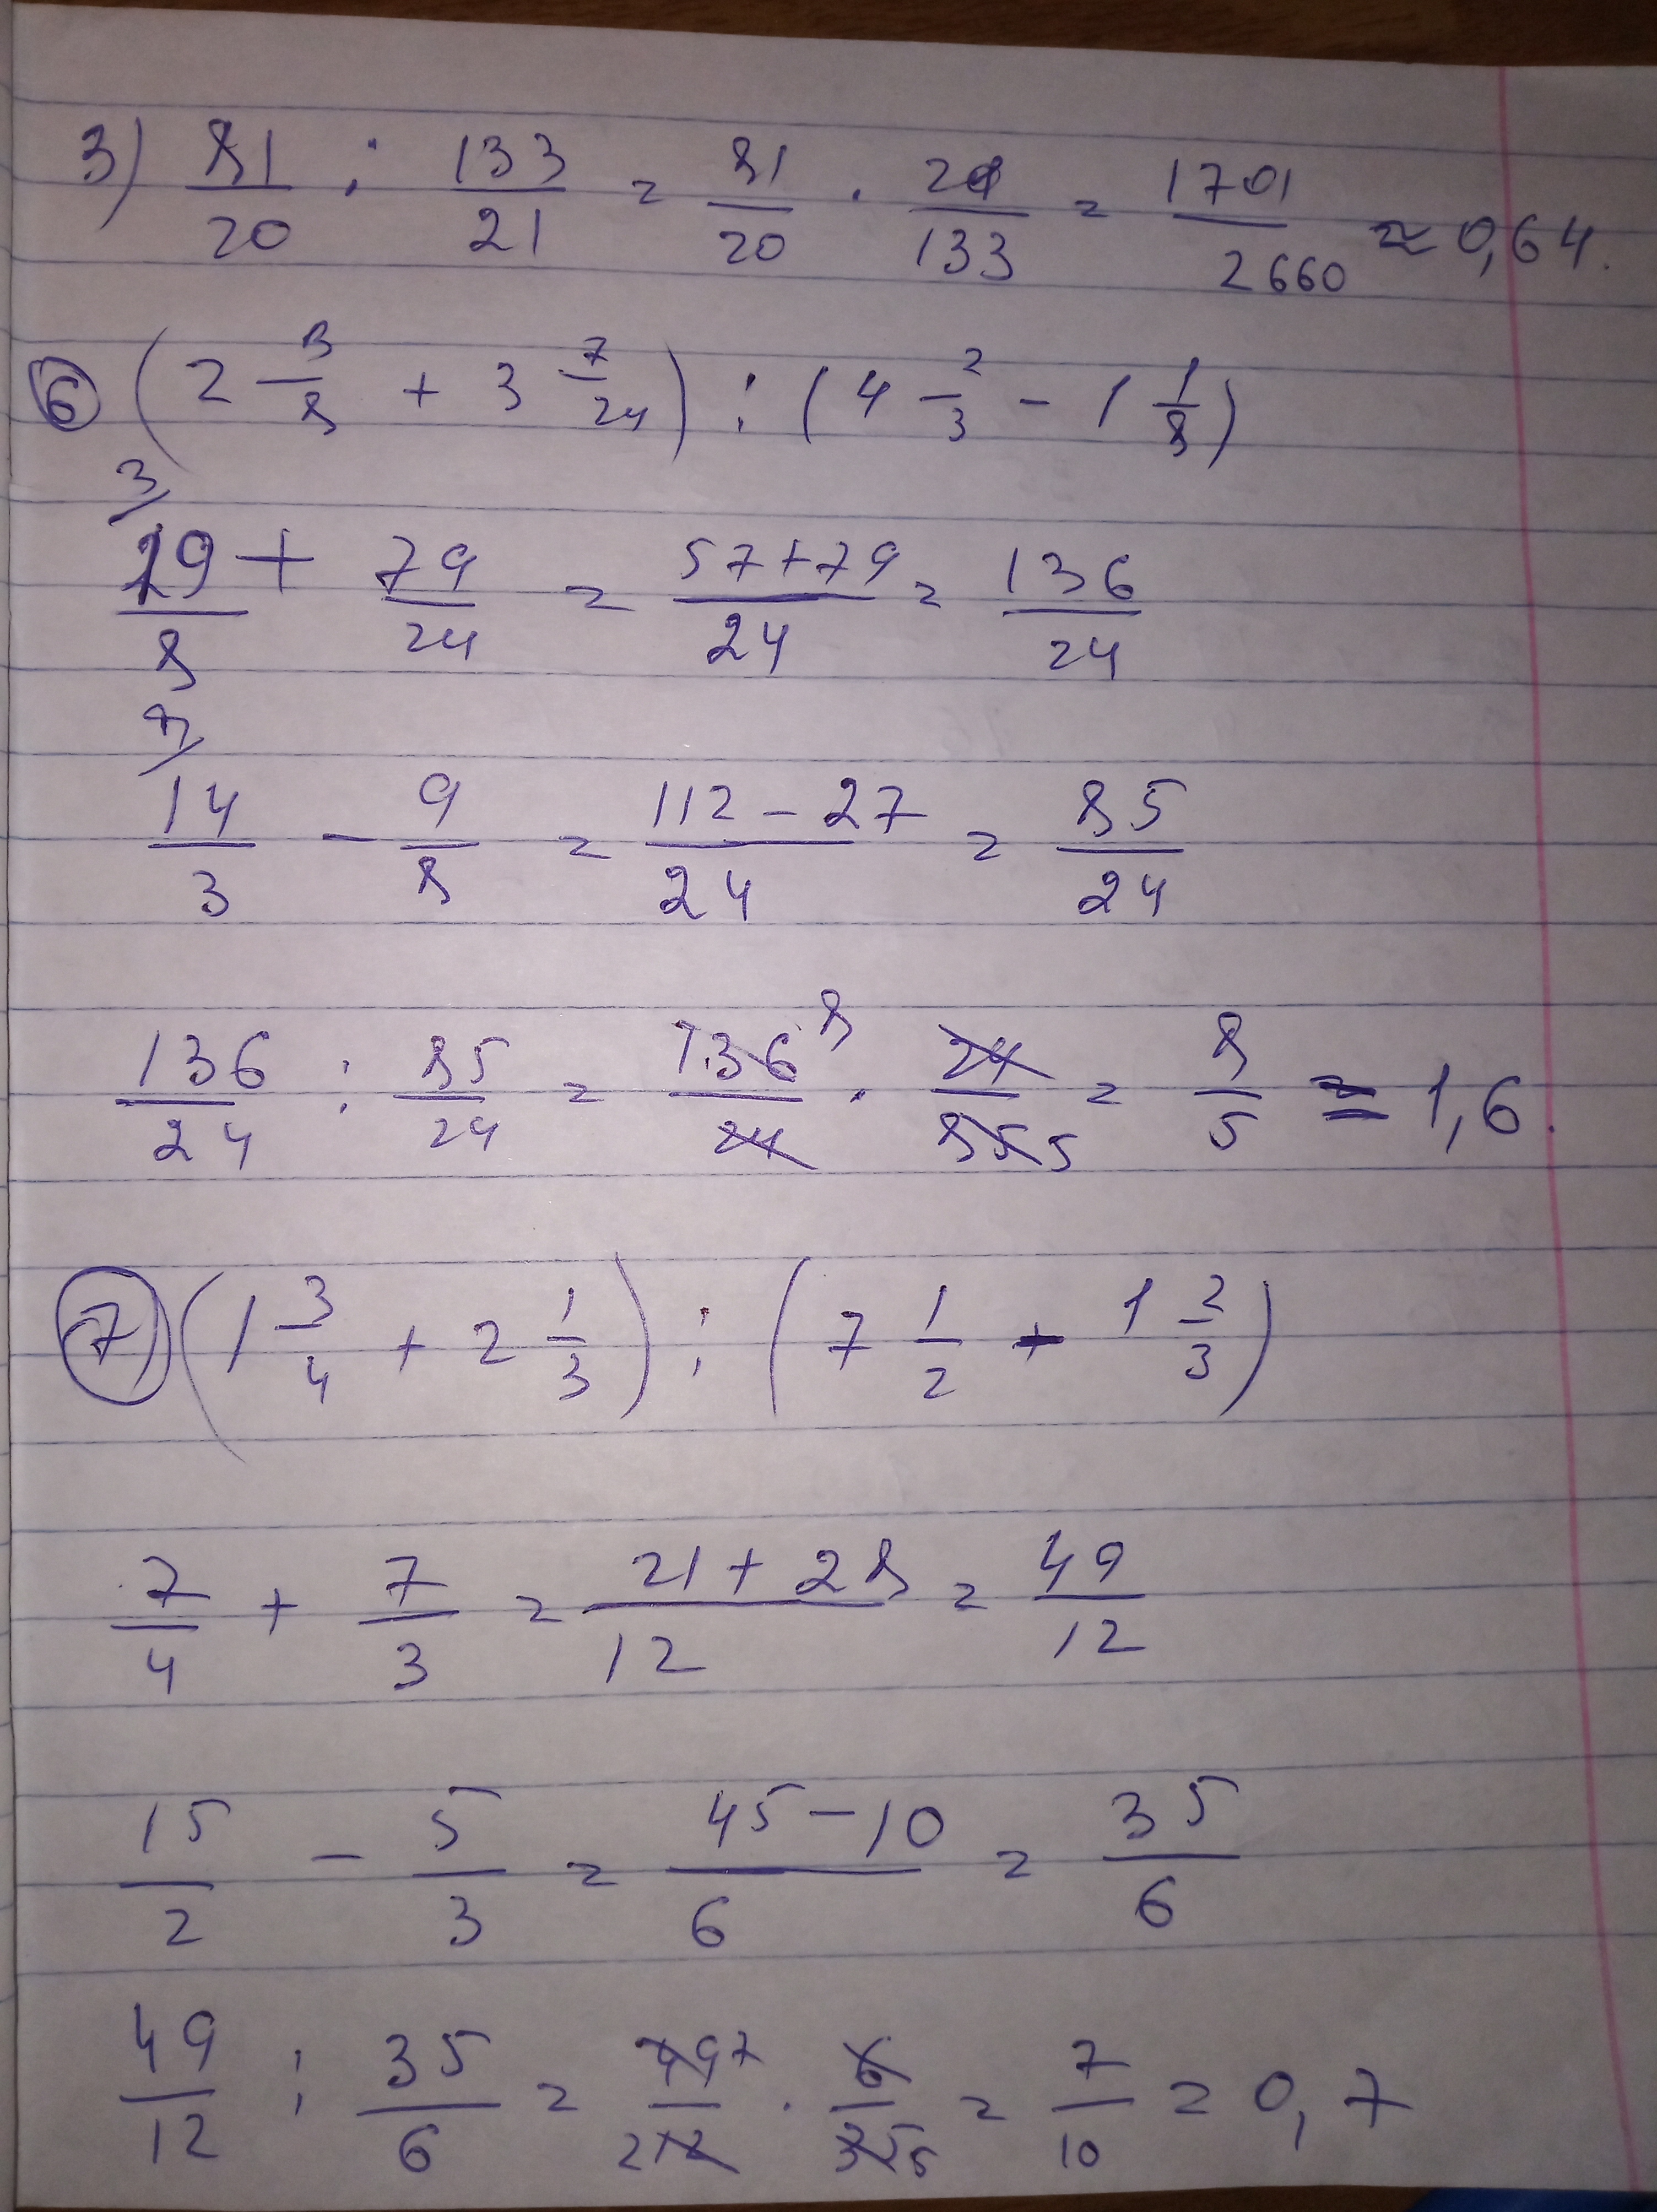 3) 81/20 : 133/21 = 81/20 · 21/133 = 1701/2660 ≈ 0,64.
6 (2 3/8 + 3 7/24) : (4 2/3 - 1 1/8)
3/ 19/8 + 79/24 = 57+79/24 = 136/24
8/ 14/3 - 9/8 = 112-27/24 = 85/24
136/24 : 85/24 = 136 8/24 · 24/85 5 = 8/5 = 1,6.
7 (1 3/4 + 2 1/3) : (7 1/2 - 1 2/3)
7/4 + 7/3 = 21+28/12 = 49/12
15/2 - 5/3 = 45-10/6 = 35/6
49/12 : 35/6 = 49 7/2 12 · 6/35 5 = 7/10 = 0,7